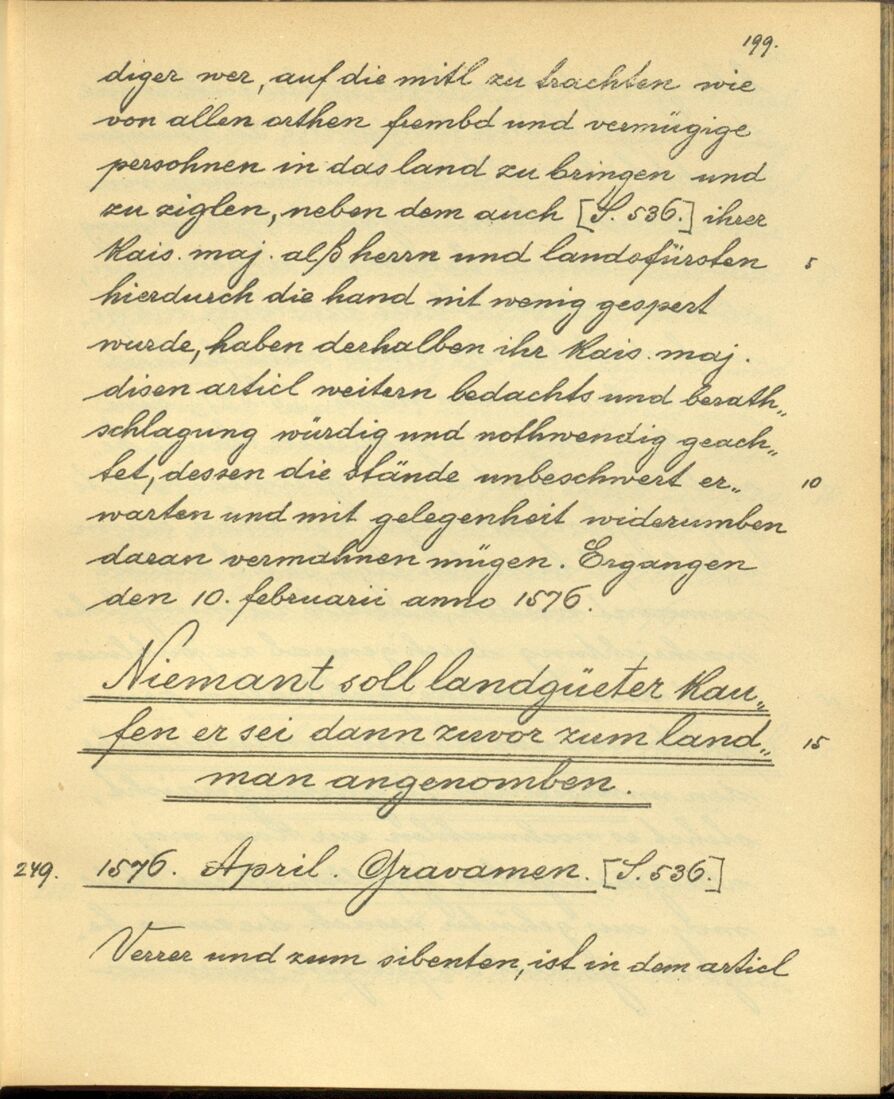 199.
diger wer, auf die mitl zu trachten wie
von allen orthen frembd und vermügige
persohnen in das land zu bringen und
zu ziglen, neben dem auch [S. 536.] ihrer
Kais. maj. alß herrn und landsfürsten 5
hierdurch die hand nit wenig gespert
wurde, haben derhalben ihr Kais. maj.
disen articl weitern bedachts und berath„
schlagung würdig und nothwendig geach„
tet, dessen die stände unbeschwert er„ 10
warten und mit gelegenheit widerumben
daran vermahnen mügen. Ergangen
den 10. februarii anno 1576.
Niemant soll landgüeter kau„
fen er sei dann zuvor zum land„ 15
man angenomben.
249. 1576. April. Gravamen. [S. 536.]
Verrer und zum sibenten, ist in dem articl